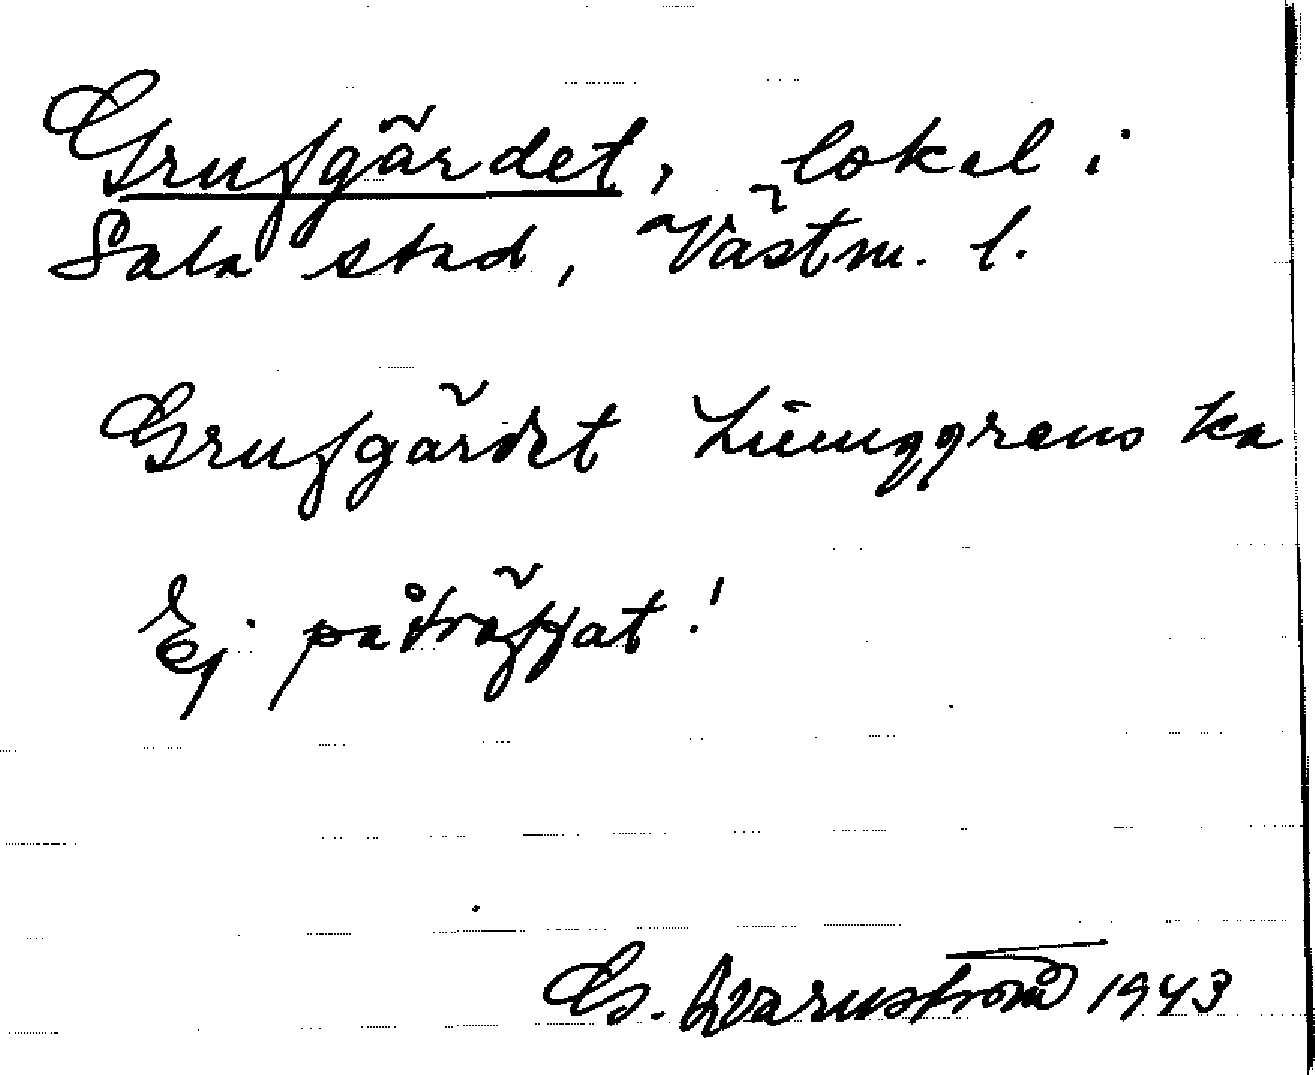 Grufgärdet, lokal i
Sala stad, Västm. l.
Grufgärdet Liunggrens ka
Ej påträffat!
G. Qvarnström 1943